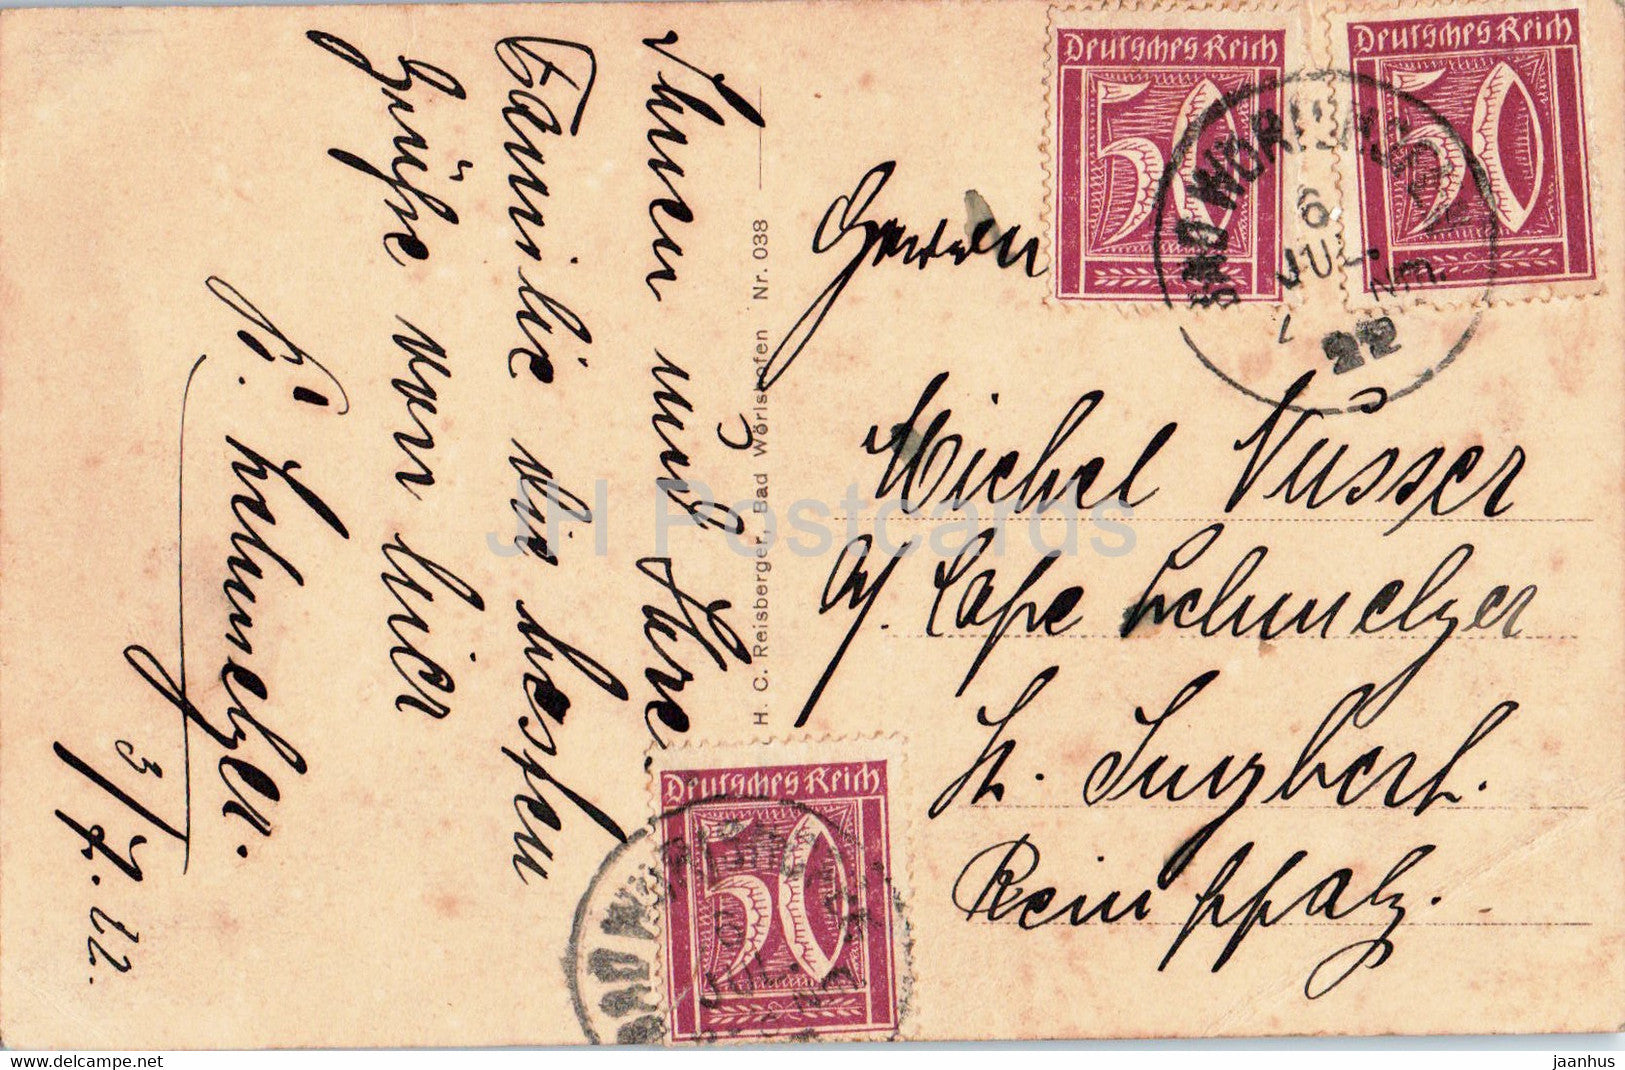 Ihnen und Ihre
Familie die besten
Grüße von hier
Fr. Schmelzer.
3/7. 22.
H. C. Reisberger, Bad Wörishofen Nr. 038
Herrn
Michel Nusser
a/. Cafe Schmelzer
St. Ingbert.
Reinpfalz.
Deutsches Reich
50
Deutsches Reich
50
Deutsches Reich
50
BAD WÖRISHOFEN
6
JUL.
Nm.
22
JH Postcards
delcampe.net
jaanhus